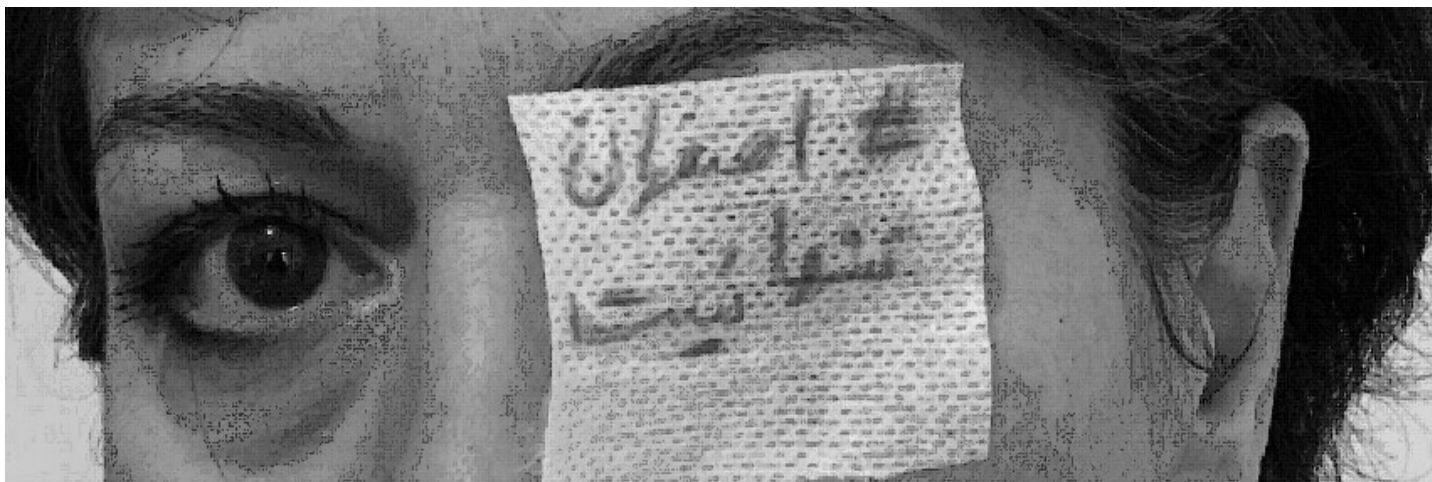 # اصفهان
تنها نیست